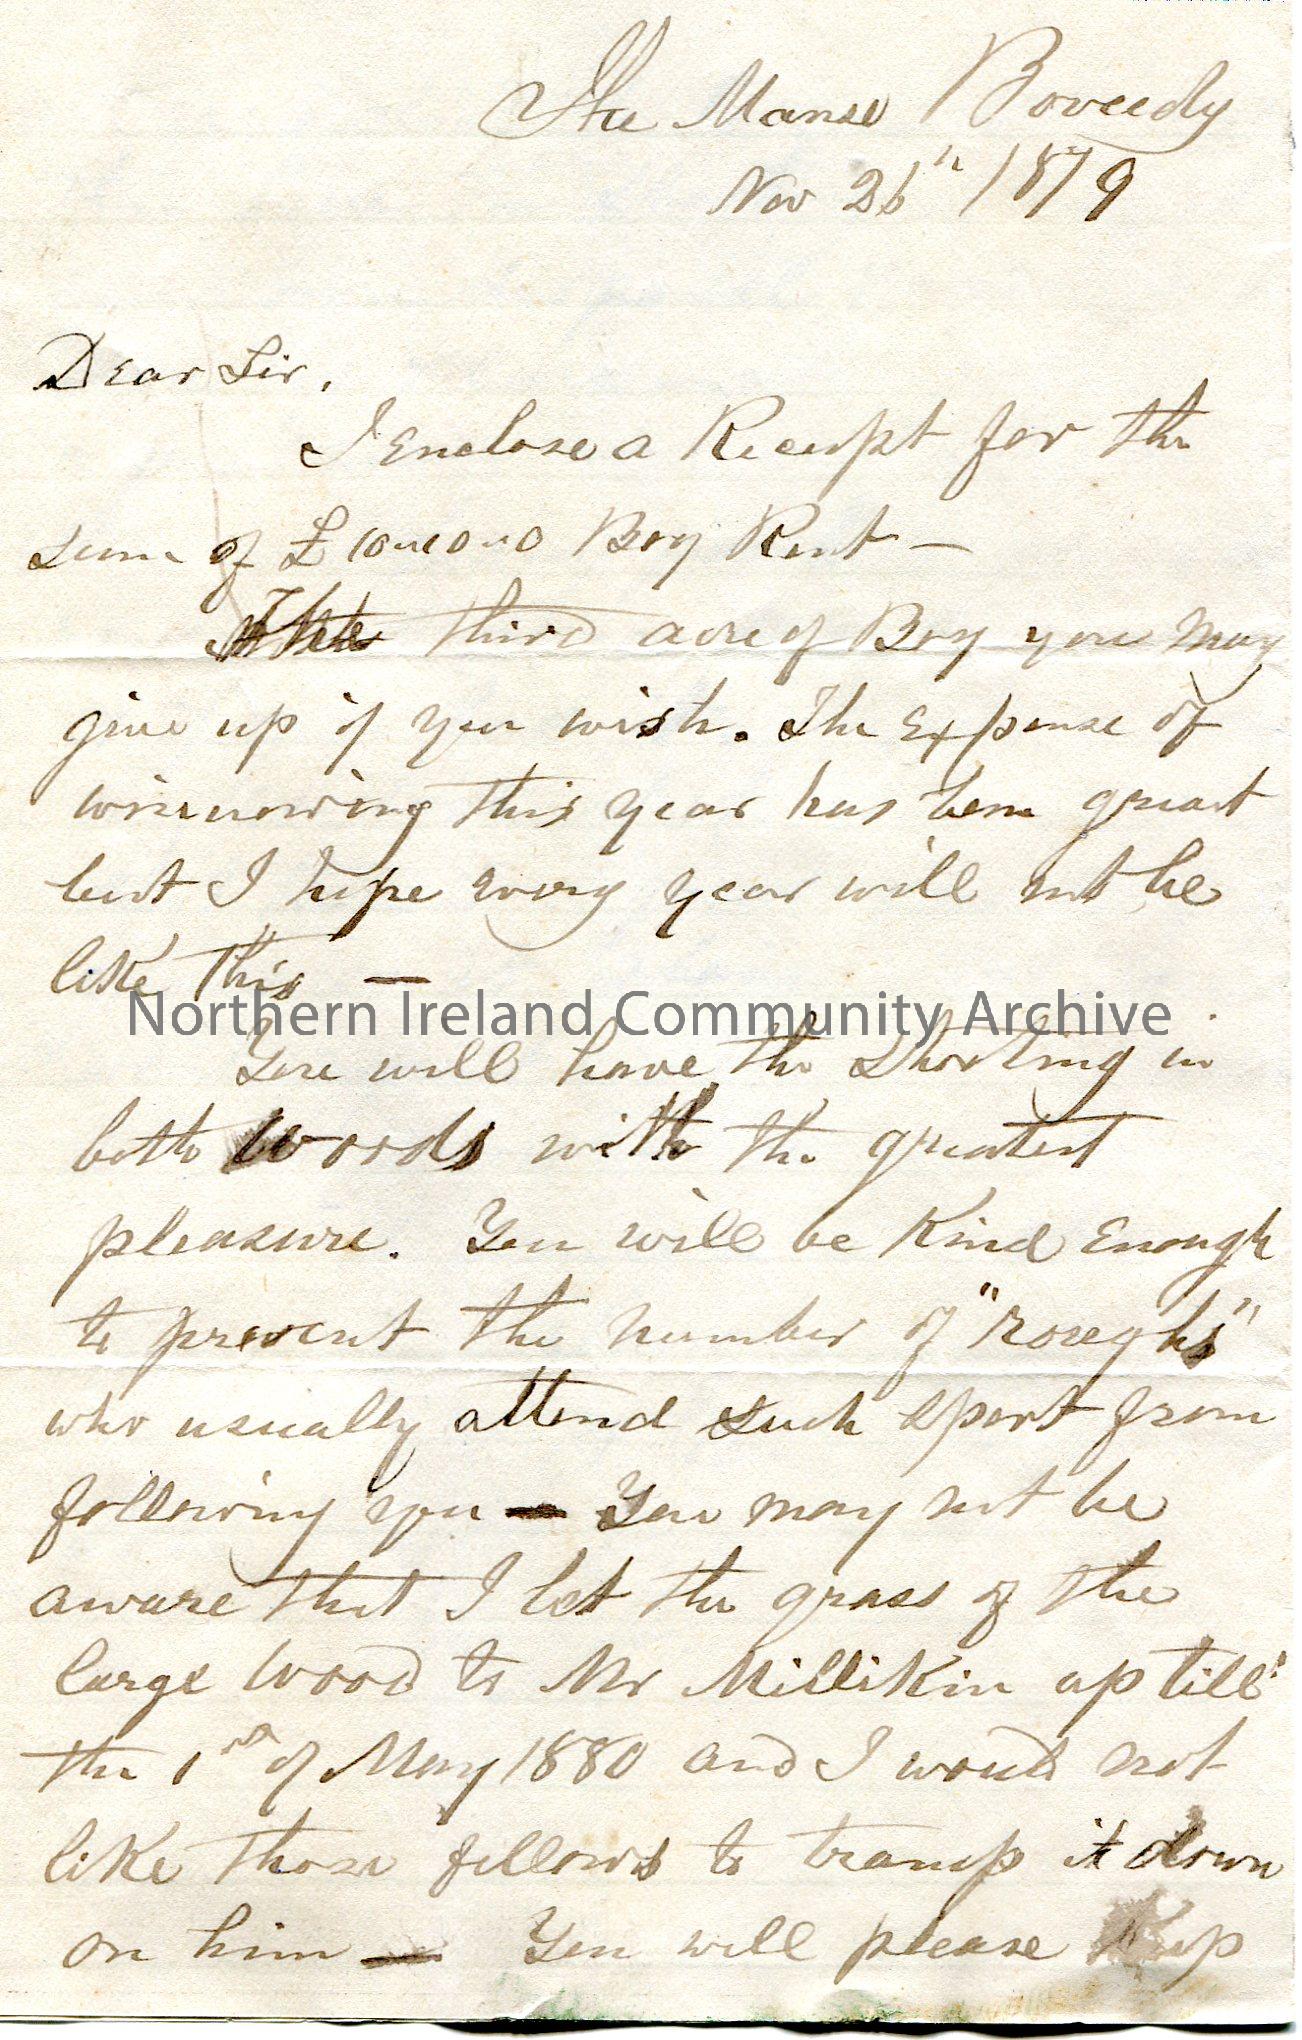 The Manse Boveedy
Nov 26th 1879
Dear Sir,
I Enclose a Receipt for the
sum of £ Bog Rent —
The third acre of Bog you may
give up if you wish. The Expense of
winnowing this year has been great
but I hope every year will not be
like this —
Northern Ireland Community Archive
You will have the Shooting in
both Woods with the greatest
pleasure. You will be Kind Enough
to prevent the number of "roughs"
who usually attend such sport from
following you — You may not be
aware that I let the grass of the
large Wood to Mr Millikin up till
the 1st of May 1880 and I would not
like those fellows to tramp it down
on him — You will please Keep